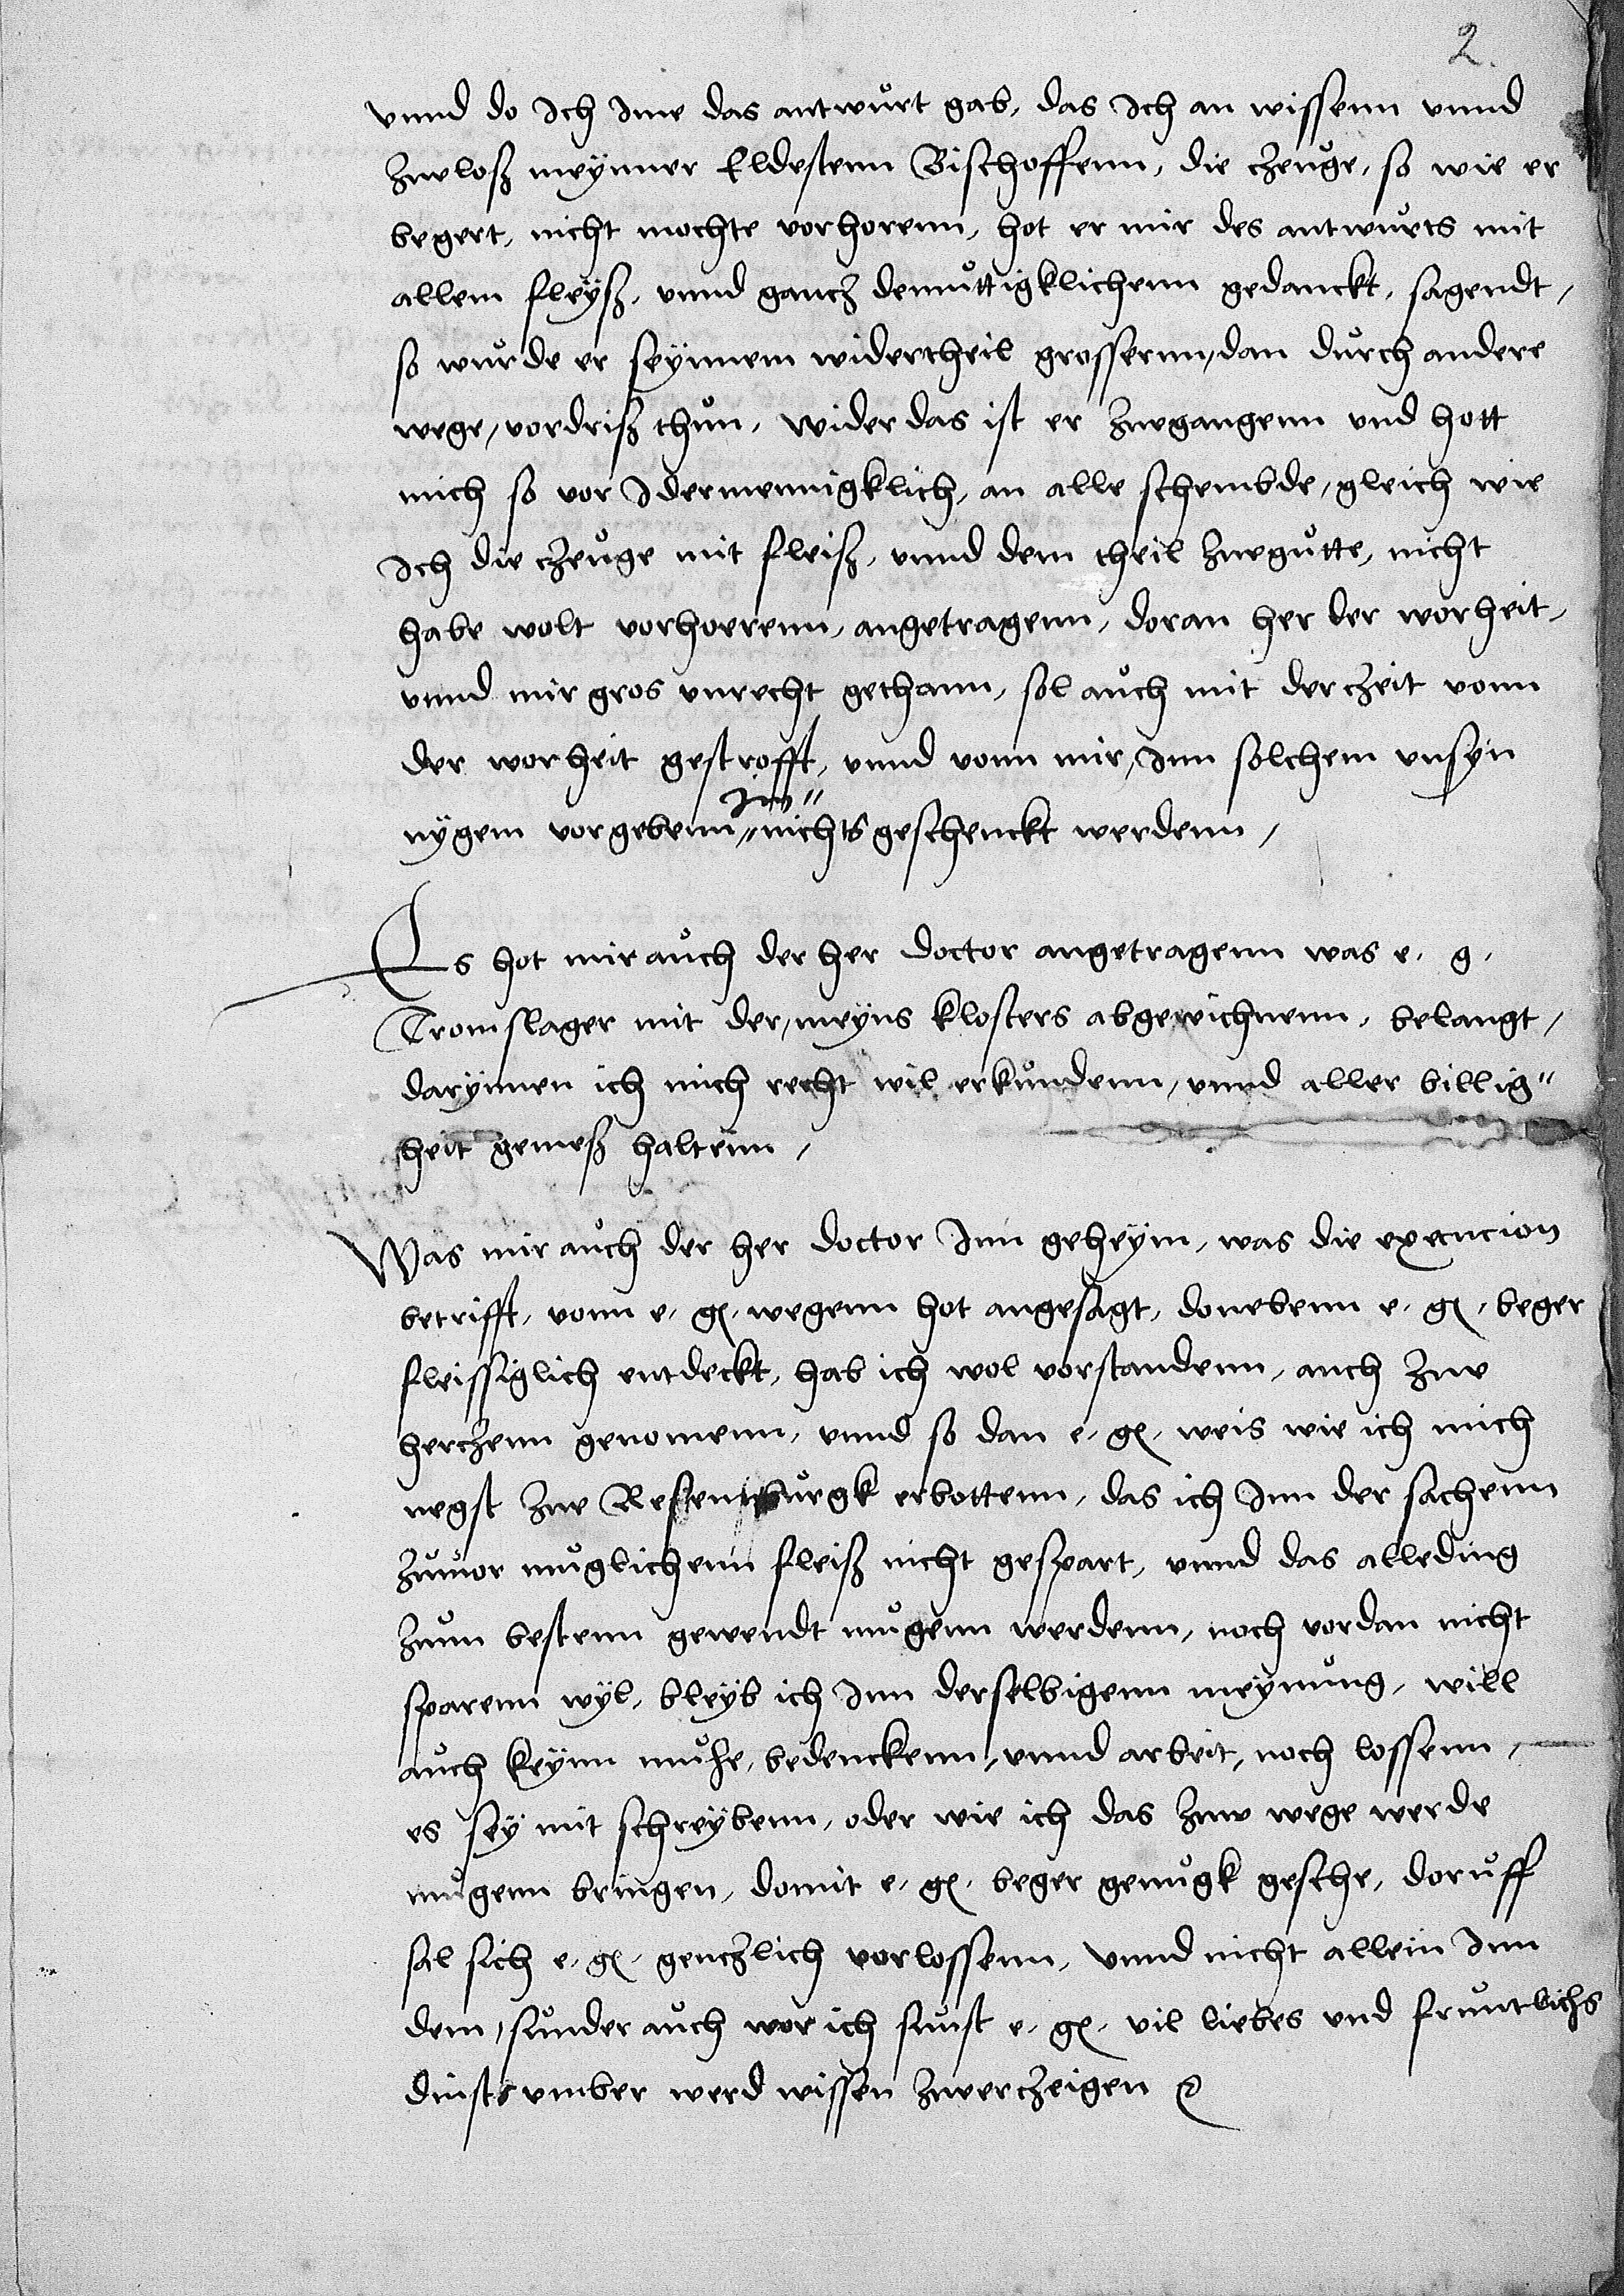 2.
vnnd do Ich Ime das antwůrt gab, das Ich an wissenn vnnd
zwloß meynner Eldestenn Bischoffenn, die czeůge, so wie er
begert, nicht mochte vorhorenn, hot er mir des antwůrts mit
allem fleyß, vnnd gancz demůttigklichenn gedanckt, sagendt,
so wůrde er seynnem widertheil grossernn, dan důrch andere
wege, vordriß thůn, wider das ist er zwgangenn vnd hott
mich so vor Idermennigklich, an alle schembde, gleich wie
Ich die czeůge mit fleiß, vnnd dem theil zwgůtte, nicht
habe wolt vorhoerenn, angetragenn, doran her der worheit,
vnnd mir gros vnrecht gethann, sol aůch mit der czeit vonn
der worheit gestrofft, vnnd vonn mir, Inn solchem vnsyn
Im"
nygem vorgebenn "nichts geschenckt werdenn,
Es hot mir aůch der her doctor angetragenn was e. g.
Tromslager mit der, meyns klosters abgewichnenn, belangt,
darynnen ich mich recht wil erkůndenn, vnnd aller billig"
heit gemeß haltenn,
Was mir aůch der her doctor Inn geheym, was die execucion
betrifft, vonn e. g. wegenn hot angesagt, donebenn e. g. beger
fleissiglich entdeckt, hab ich wol vorstandenn, auch zwe
herczenn genomenn, vnnd so dan e. g. weis wie ich mich
negst zwe Restenbůrgk erbottenn, das ich Inn der sachenn
zůuor můglichenn fleiß nicht gespart, vnnd das alleding
zům bestenn gewendt můgenn werdenn, noch vordan nicht
sparenn wyl, bleyb ich Inn derselbigenn meynůng, will
aůch keynn můhe, bedenckenn, vnnd arbeit, noch lossenn,
es sey mit schreybenn, oder wie ich das zwe wege werde
můgenn bringen, domit e. g. beger genůgk geschee, dorůff
sal sich e. g. genczlich vorlossenn, Vnnd nicht allein Inn
dem, sůnder aůch wor ich sůnst e. g. vil liebes vnd frůntlichs
dinsts vmber werd wissen zwerczeigen